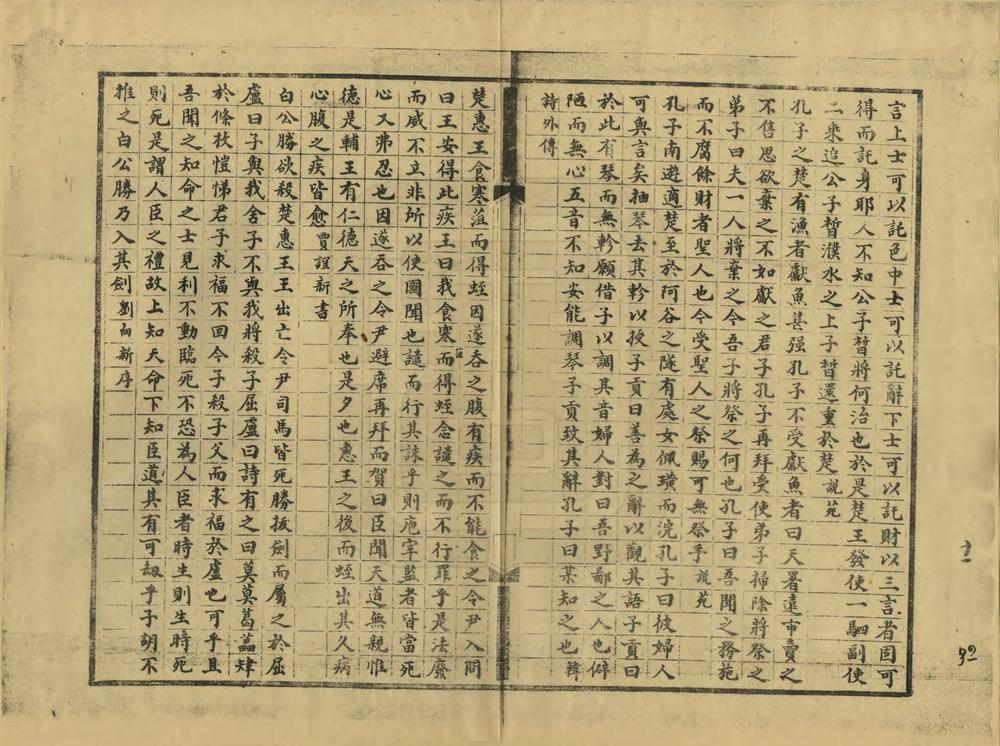 言上士可以託色中士可以託辭下士可以託財以三言者固可
得而託身耶人不知公子晳將何治也於是楚王發使一駟副使
二乘追公子晳濮水之上子晳還重於楚說苑
孔子之楚有漁者獻魚甚强孔子不受獻魚者曰天署遠市賣之
不售思欲棄之不如獻之君子孔子再拜受使弟子掃除將祭之
弟子曰夫一人將棄之今吾子將祭之何也孔子曰吾聞之務苑
而不腐餘財者聖人也今受聖人之祭賜可無祭乎說苑
孔子南遊適楚至於阿谷之隧有處女佩璜而浣孔子曰彼婦人
可與言矣抽琴去其軫以授子貢曰善為之辭以觀其語子貢曰
於此有琴而無軫願借子以調其音婦人對曰吾野鄙之人也僻
陋而無心五音不知安能調琴子貢致其辭孔子曰某知之也韓
詩外傳
楚惠王食寒菹而得蛭因遂吞之腹有疾而不能食之令尹入問
曰王安得此疾王曰我食寒菹而得蛭念譴之而不行罪乎是法廢
而威不立非所以使國聞也譴而行其誅乎則庖宰監者皆當死
心又弗忍也因遂吞之令尹避席再拜而賀曰臣聞天道無親惟
德是輔王有仁德天之所奉也是夕也惠王之後而蛭出其久病
心腹之疾皆愈賈誼新書
白公勝欲殺楚惠王王出亡令尹司馬皆死勝拔劍而屬之於屈
盧曰子與我舍子不與我將殺子屈盧曰詩有之曰莫莫葛藟肄
於條枚愷悌君子求福不回今子殺子父而求福於盧也可乎且
吾聞之知命之士見利不動臨死不恐為人臣者時生則生時死
則死是謂人臣之禮故上知天命下知臣道其有可刼乎子胡不
推之白公勝乃入其劍劉向新序
92